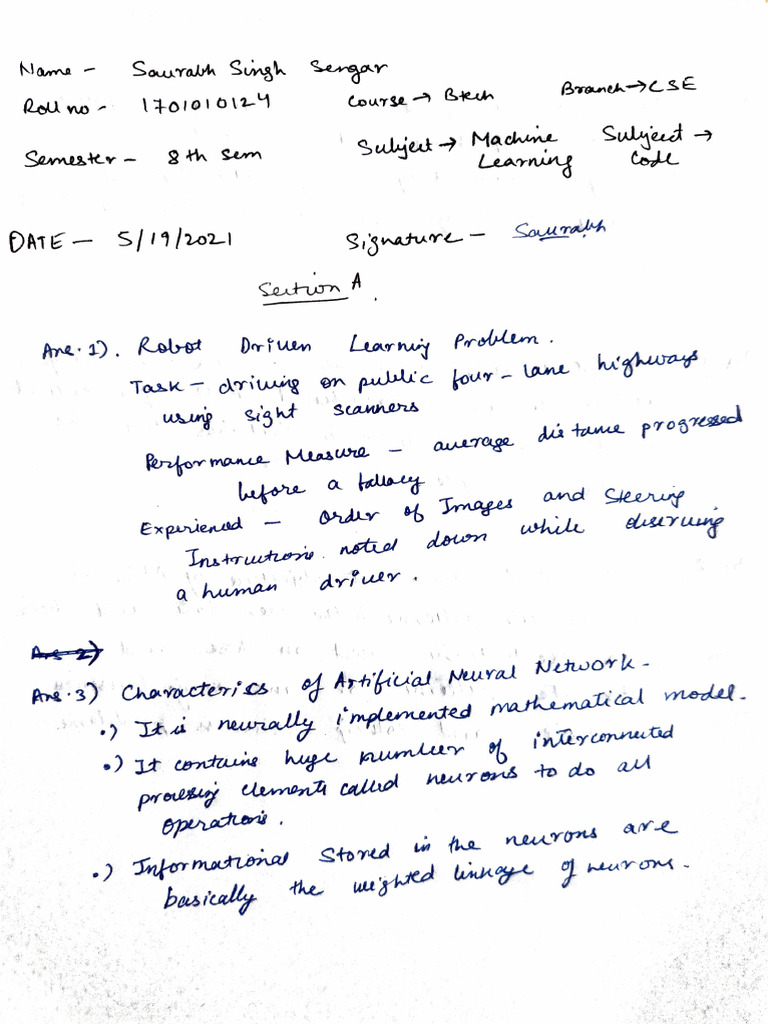 Name - Saurabh Singh Sengar
Roll no - 1701010124 Course → Btech Branch → CSE
Semester - 8th sem Subject → Machine Learning Subject Code →
DATE - 5/19/2021 Signature - Saurabh
Section A.
Ans.1). Robot Driven Learning Problem.
Task - driving on public four-lane highways
using sight scanners
Performance Measure - average distance progressed
before a fallacy
Experienced - Order of Images and Steering
Instructions noted down while observing
a human driver.
Ans 2)
Ans.3) Characterics of Artificial Neural Network -
.) It is neurally implemented mathematical model.
.) It contains huge number of interconnected
processing elements called neurons to do all
operations.
.) Informational Stored in the neurons are
basically the weighted linkage of neurons.